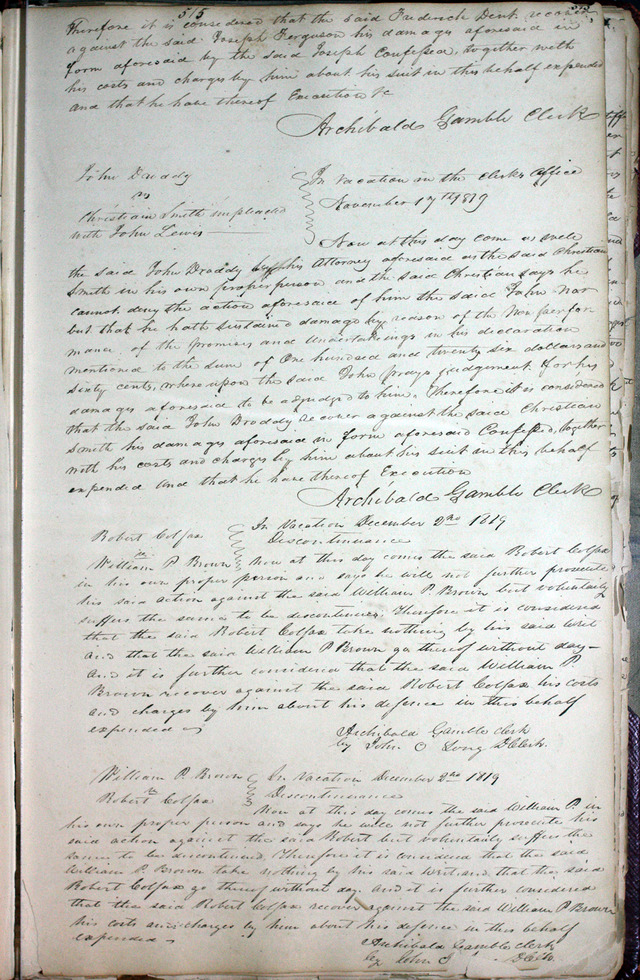 515
Therefore it is considered that the said Frederick Dent recover
against the said Joseph Ferguson his damages aforesaid in
form aforesaid by the said Joseph Confessed, together with
his costs and charges by him about his suit in this behalf expended
and that he have thereof Execution &c
Archibald Gamble Clerk
John Draddy
vs
Christian Smith impleaded
with John Lewis
In Vacation in the Clerks Office
November 17th 1819
Now at this day come as well
the said John Draddy by his Attorney aforesaid as the said Christian
Smith in his own proper person and the said Christian says he
cannot deny the action aforesaid of him the said John nor
but that he hath sustained damage by reason of the Non perfor
mance of the promises and undertakings in his declaration
mentioned to the sum of One hundred and twenty six dollars and
sixty cents, where upon the said John prays judgement for his
damages aforesaid to be adjudged to him. Therefore it is considered
that the said John Draddy recover against the said Christian
Smith his damages aforesaid in form aforesaid Confessed, together
with his costs and charges by him about his suit in this behalf
expended and that he have thereof Execution
Archibald Gamble Clerk
Robert Colfax
vs
William P Brown
In Vacation December 2nd 1819
Discontinuance
Now at this day comes the said Robert Colfax
in his own proper person and says he will not further prosecute
his said action against the said William P. Brown but voluntarily
suffers the same to be discontinued. Therefore it is considered
that the said Robert Colfax take nothing by his said writ
and that the said William P Brown go thereof without day—
and it is further considered that the said William P
Brown recover against the said Robert Colfax his costs
and charges by him about his defence in this behalf
expended
Archibald Gamble Clerk
by John C Long D Clerk.
William P. Brown
vs
Robert Colfax
In Vacation December 2nd 1819
Discontinuance
Now at this day comes the said William P. in
his own proper person and says he will not further prosecute his
said action against the said Robert but voluntarily suffers the
same to be discontinued. Therefore it is considered that the said
William P. Brown take nothing by his said Writ and that the said
Robert Colfax go thereof without day. and it is further considered
that the said Robert Colfax recover against the said William P Brown
his costs and charges by him about his defence in this behalf
expended
Archibald Gamble Clerk
by John